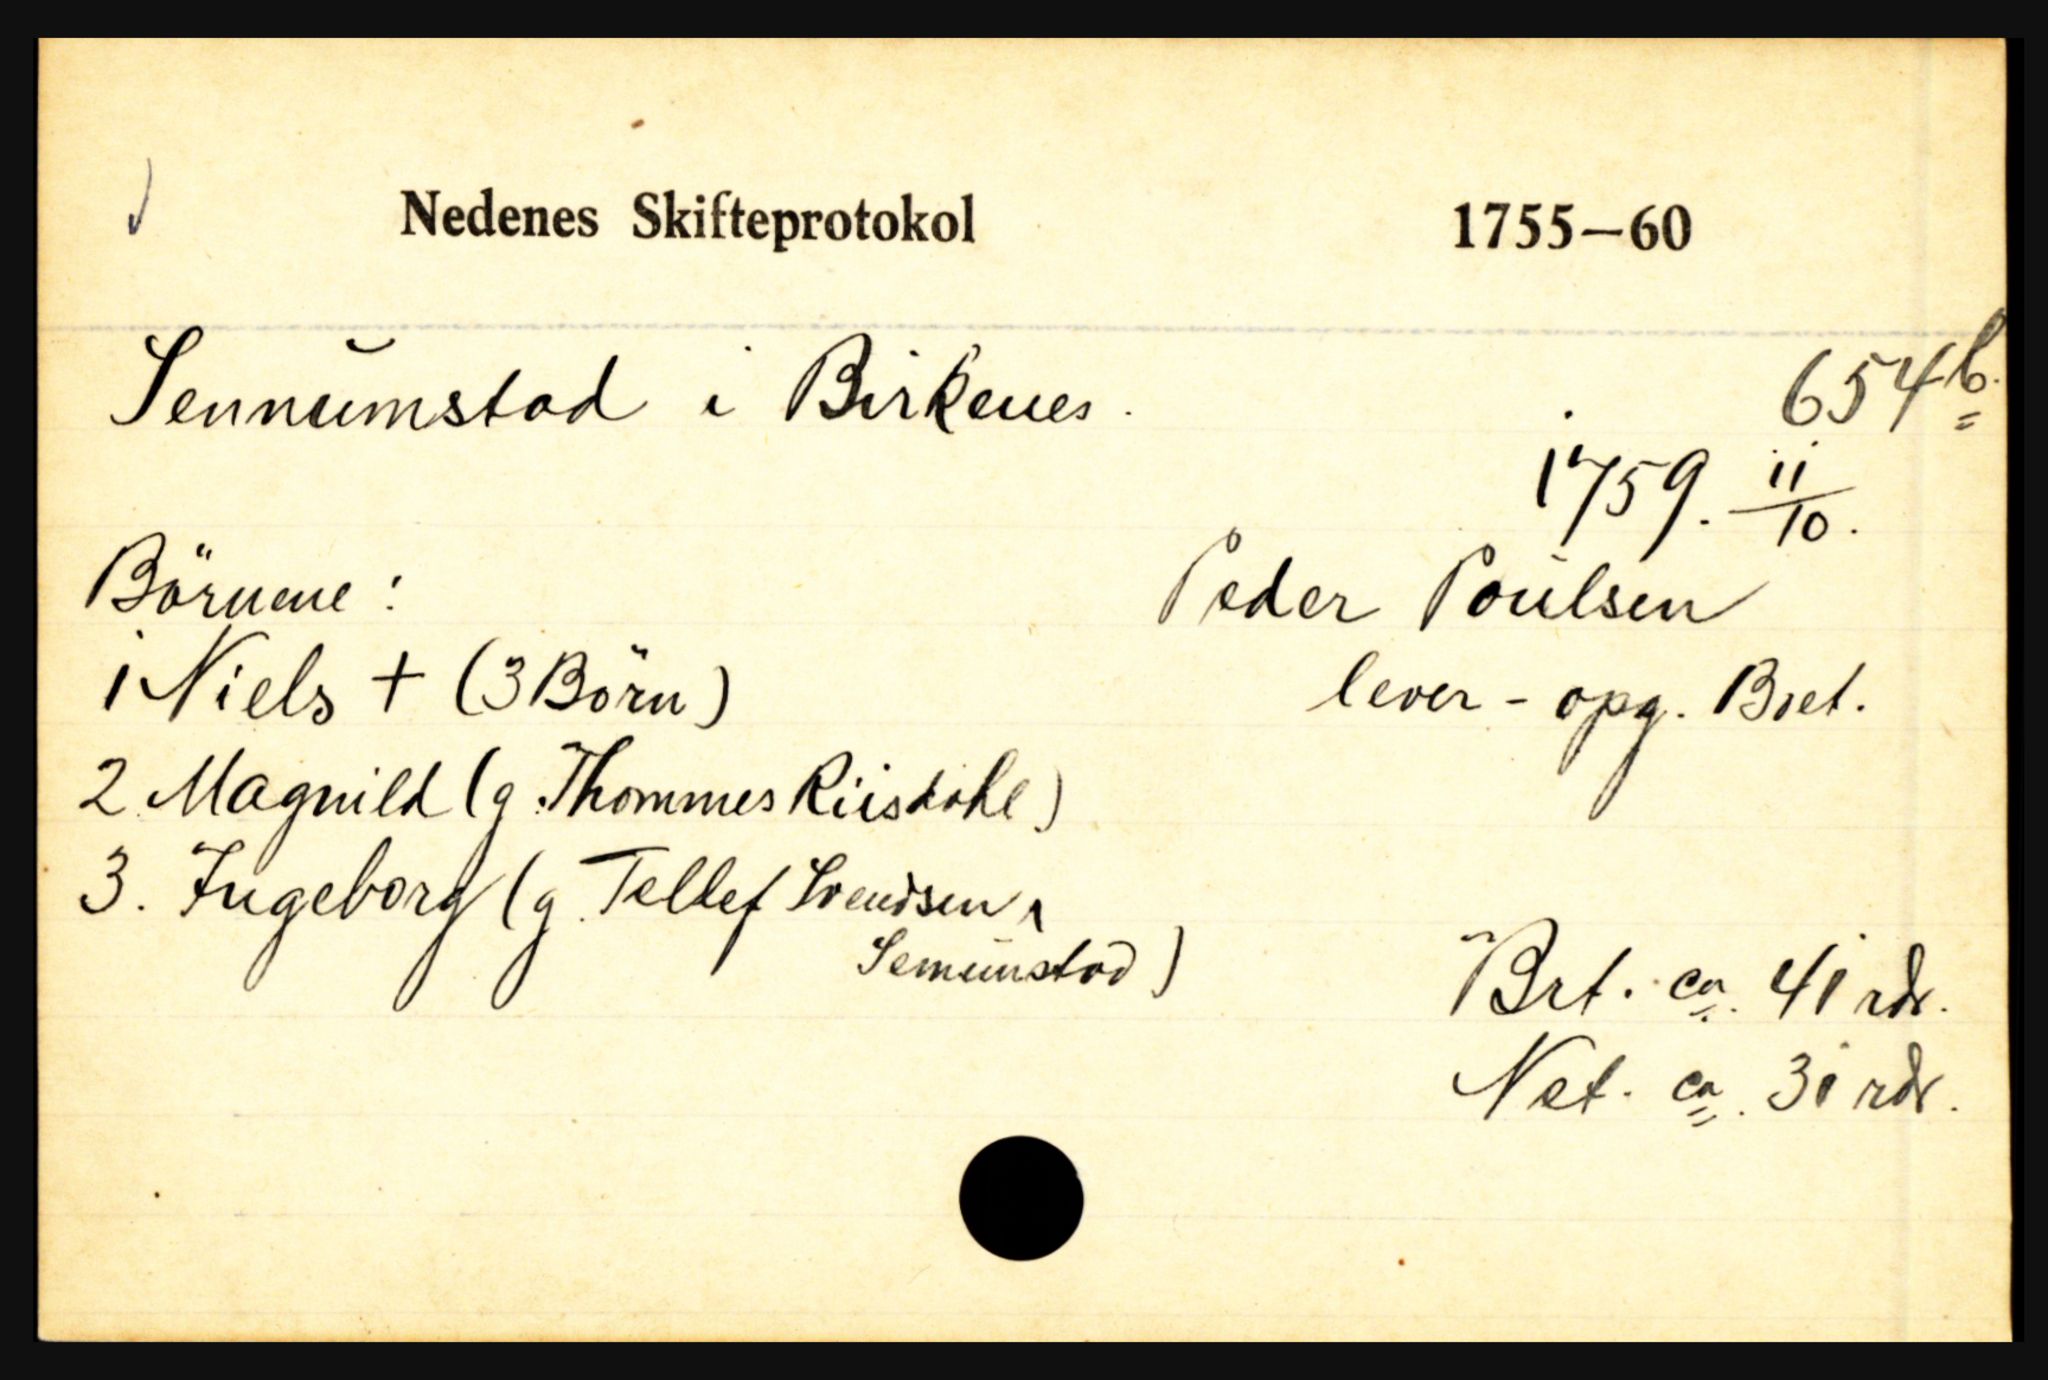 Nedenes Skifteprotokol 1755—60
Sennumstad i Birkenes. 654b.
1759. 11/10.
Börnene: Peder Poulsen
1 Niels + (3 Börn) lever - opg. Boet.
2. Magnild (g. Thommes Riisdahl)
3. Ingeborg (g. Tellef Svendsen,
Semunstad)
Brt. ca. 41 rdr.
Net. ca. 31 rdr.